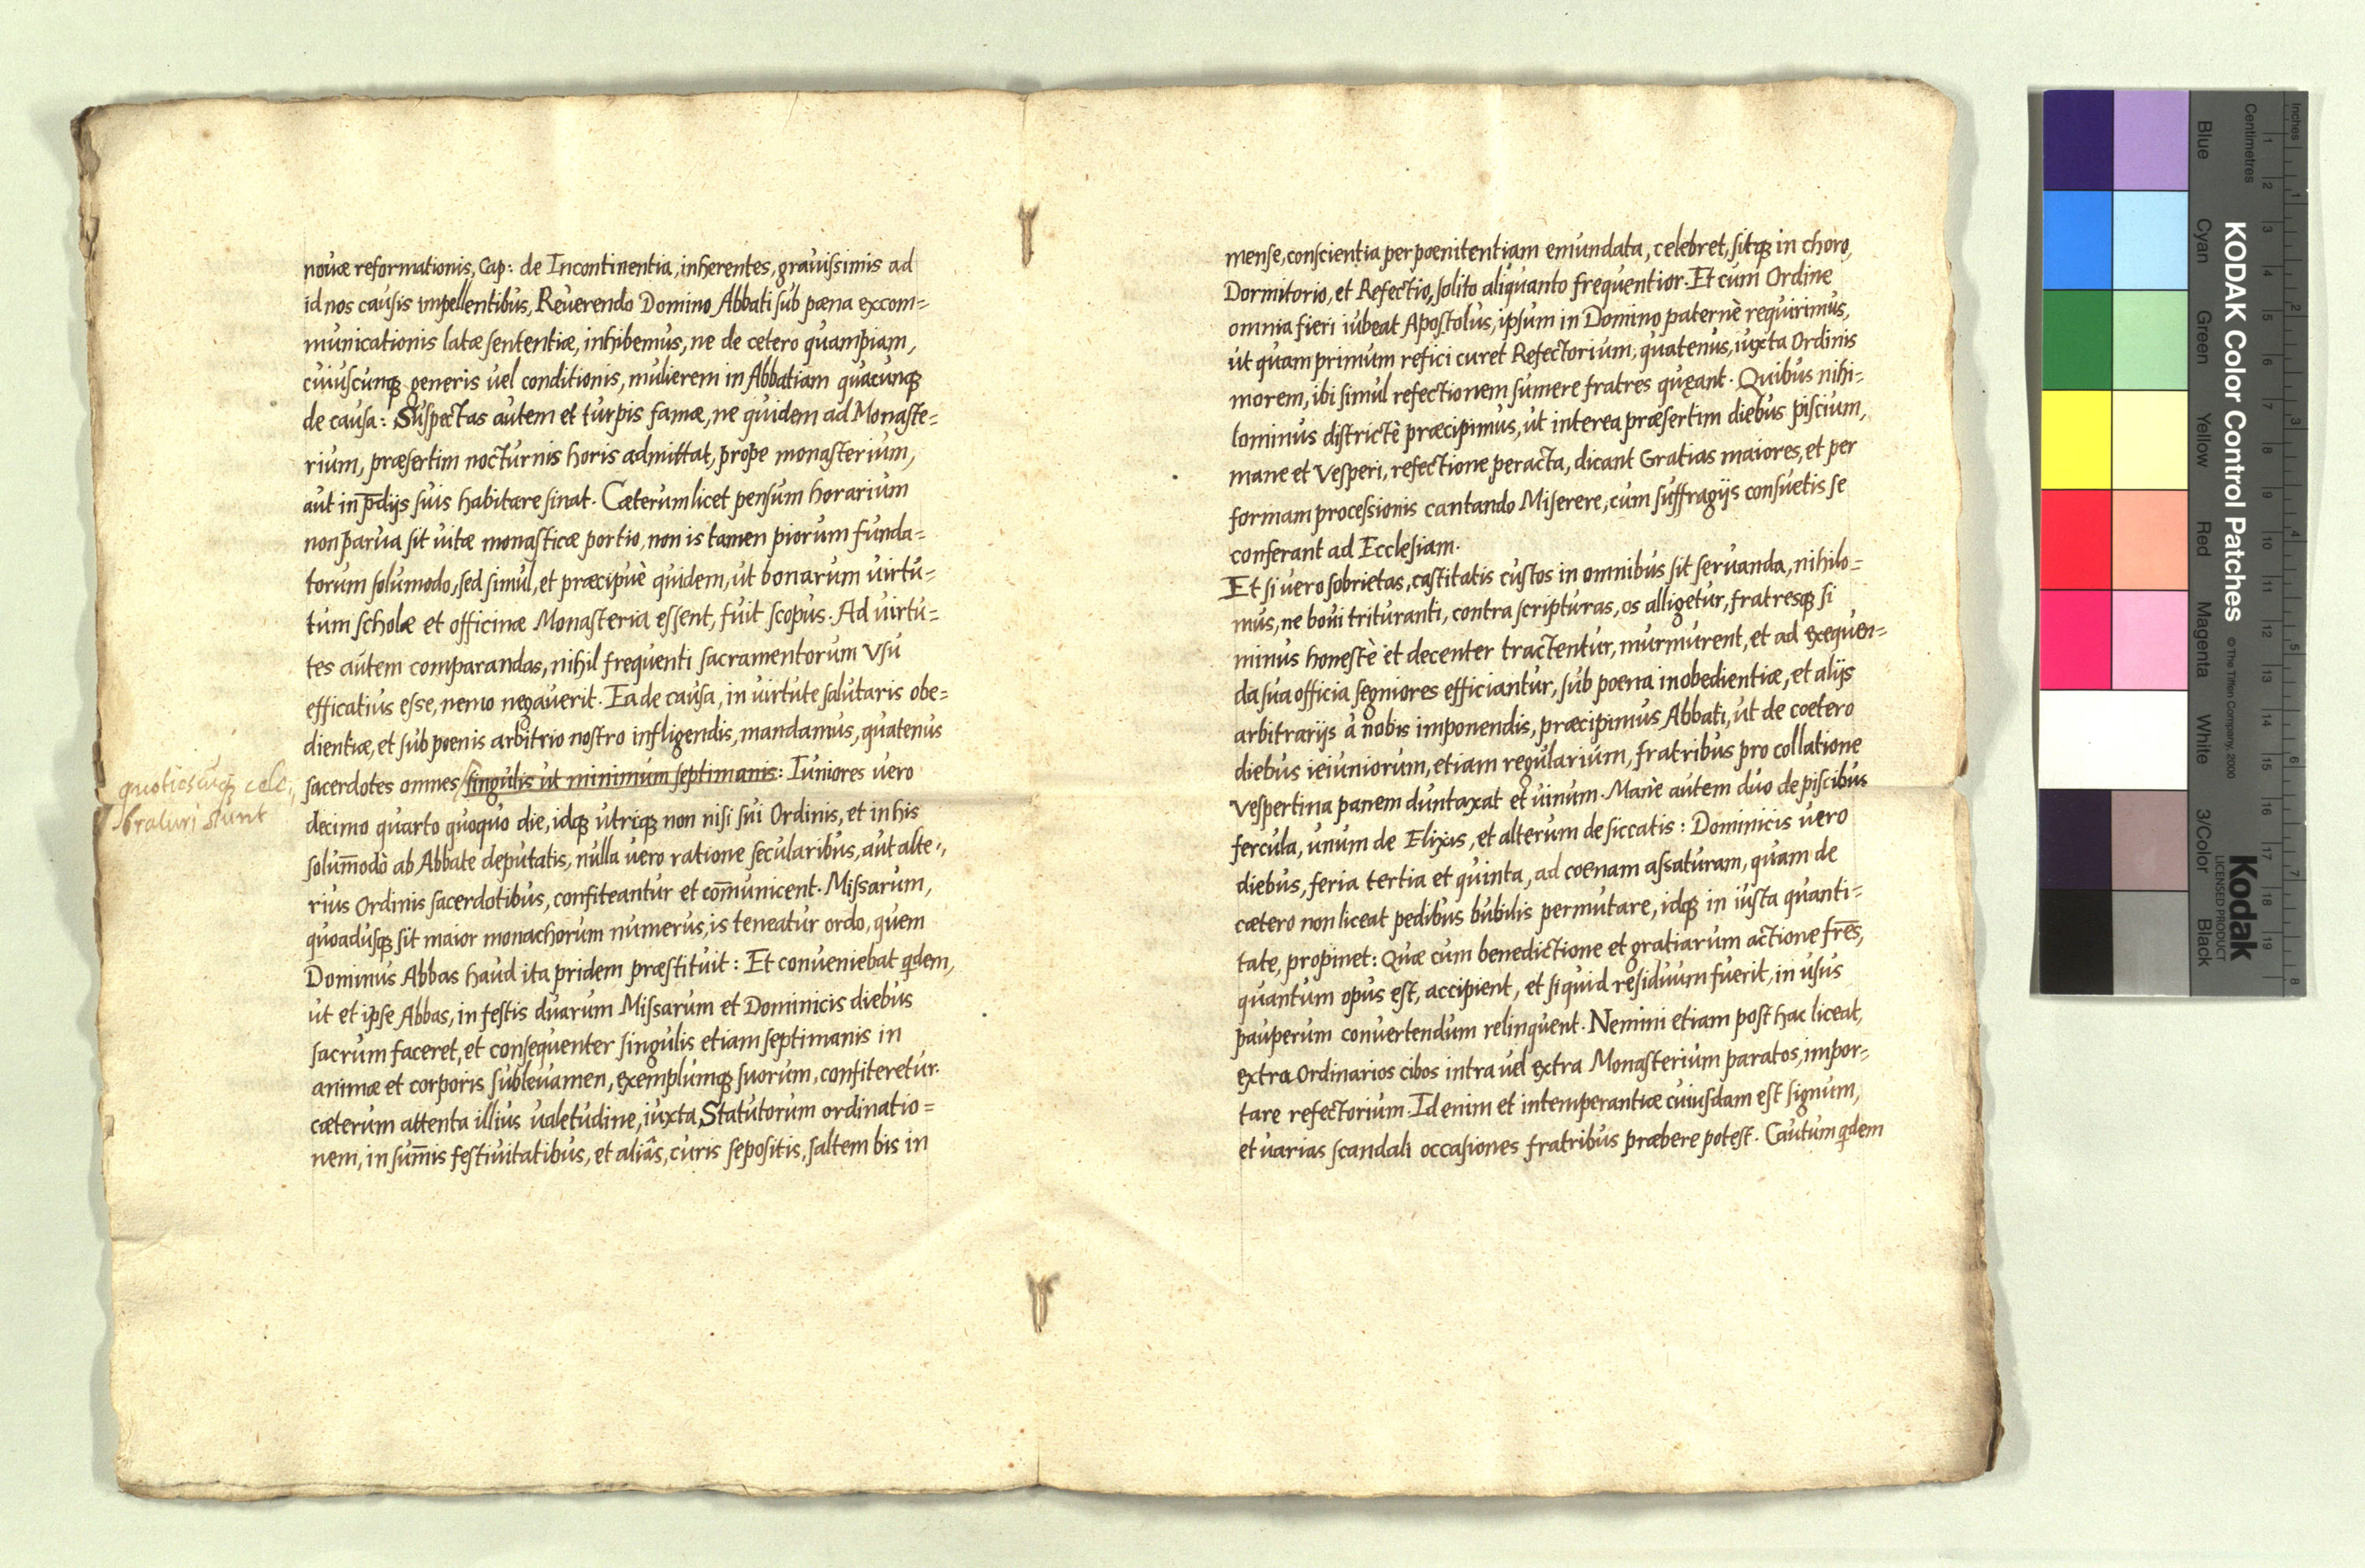 novæ reformationis, Cap: de Incontinentia, inherentes, gravissimis ad
id nos causis impellentibus, Reverendo Domino Abbati sub pœna excom=
municationis latæ sententiæ, inhibemus, ne de cetero quampiam,
cuiuscunqꝫ generis vel conditionis, mulierem in Abbatiam quacunqꝫ
de causa: Suspectas autem et turpis famæ, ne quidem ad Monaste=
rium, præsertim nocturnis horis admittat, prope monasterium,
aut in p̄dijs suis habitare sinat. Cæterum licet pensum horarium
non parva sit vitæ monasticæ portio, non is tamen piorum funda=
torum solumodo, sed simul, et præcipuè quidem, ut bonarum virtu=
tum scholæ et officinæ Monasteria essent, fuit scopus. Ad virtu=
tes autem comparandas, nihil frequenti sacramentorum usu
efficatius esse, nemo negaverit. Ea de causa, in virtute salutaris obe=
dientiæ, et sub poenis arbitrio nostro infligendis, mandamus, quatenus
quotiescuqꝫ cele,
braturi sunt
sacerdotes omnes singulis ut minimum septimanis: Iuniores vero
decimo quarto quoquo die, idqꝫ utriqꝫ non nisi sui Ordinis, et in his
solum̄odò ab Abbate deputatis, nulla vero ratione secularibus, aut alte,,
rius Ordinis sacerdotibus, confiteantur et com̄unicent. Missarum,
quoadusqꝫ sit maior monachorum numerus, is teneatur ordo, quem
Dominus Abbas haud ita pridem præstituit: Et conveniebat qdem,
ut et ipse Abbas, in festis duarum Missarum et Dominicis diebus
sacrum faceret, et consequenter singulis etiam septimanis in
animæ et corporis sublevamen, exemplumqꝫ suorum, confiteretur.
cæterum attenta illius valetudine, iuxta Statutorum ordinatio=
nem, in sum̄is festivitatibus, et aliâs, curis sepositis, saltem bis in
mense, conscientia per poenitentiam emundata, celebret, sitqꝫ in choro,
Dormitorio, et Refectio, solito aliquanto frequentior. Et cum Ordine
omnia fieri iubeat Apostolus, ipsum in Domino paternè requirimus,
ut quam primum refici curet Refectorium, quatenus, iuxta Ordinis
morem, ibi simul refectionem sumere fratres queant. Quibus nihi=
lominus districtè præcipimus, ut interea præsertim diebus piscium,
mane et Vesperi, refectione peracta, dicant Gratias maiores, et per
formam processionis cantando Miserere, cum suffragijs consuetis se
conferant ad Ecclesiam.
Et si vero sobrietas, castitatis custos in omnibus sit servanda, nihilo=
mus, ne bovi trituranti, contra scripturas, os alligetur, fratresqꝫ si
minus honestè et decenter tractentur, murmurent, et ad exequen=
da sua officia segniores efficiantur, sub poena inobedientiæ, et alijs
arbitrarijs à nobis imponendis, præcipimus Abbati, ut de coetero
diebus ieiuniorum, etiam regularium, fratribus pro collatione
vespertina panem duntaxat et vinum. Manè autem duo de piscibus
fercula, unum de Elixis, et alterum de siccatis: Dominicis vero
diebus, feria tertia et quinta, ad coenam assaturam, quam de
cætero non liceat pedibus bubilis permutare, idqꝫ in iusta quanti=
tate, propinet: Quæ cum benedictione et gratiarum actione frēs,
quantum opus est, accipient, et siquid residuum fuerit, in usus
pauperum convertendum relinquent. Nemini etiam post hac liceat,
extra Ordinarios cibos intra vel extra Monasterium paratos, impor=
tare refectorium. Id enim et intemperantiæ cuiusdam est signum,
et varias scandali occasiones fratribus præbere potest. Cautum qdem
KODAK Color Control Patches
© The Tiffen Company, 2000
Kodak
LICENSED PRODUCT
Inches 1 2 3 4 5 6 7 8
Centimetres 1 2 3 4 5 6 7 8 9 10 11 12 13 14 15 16 17 18 19
Blue Cyan Green Yellow Red Magenta White 3/Color Black